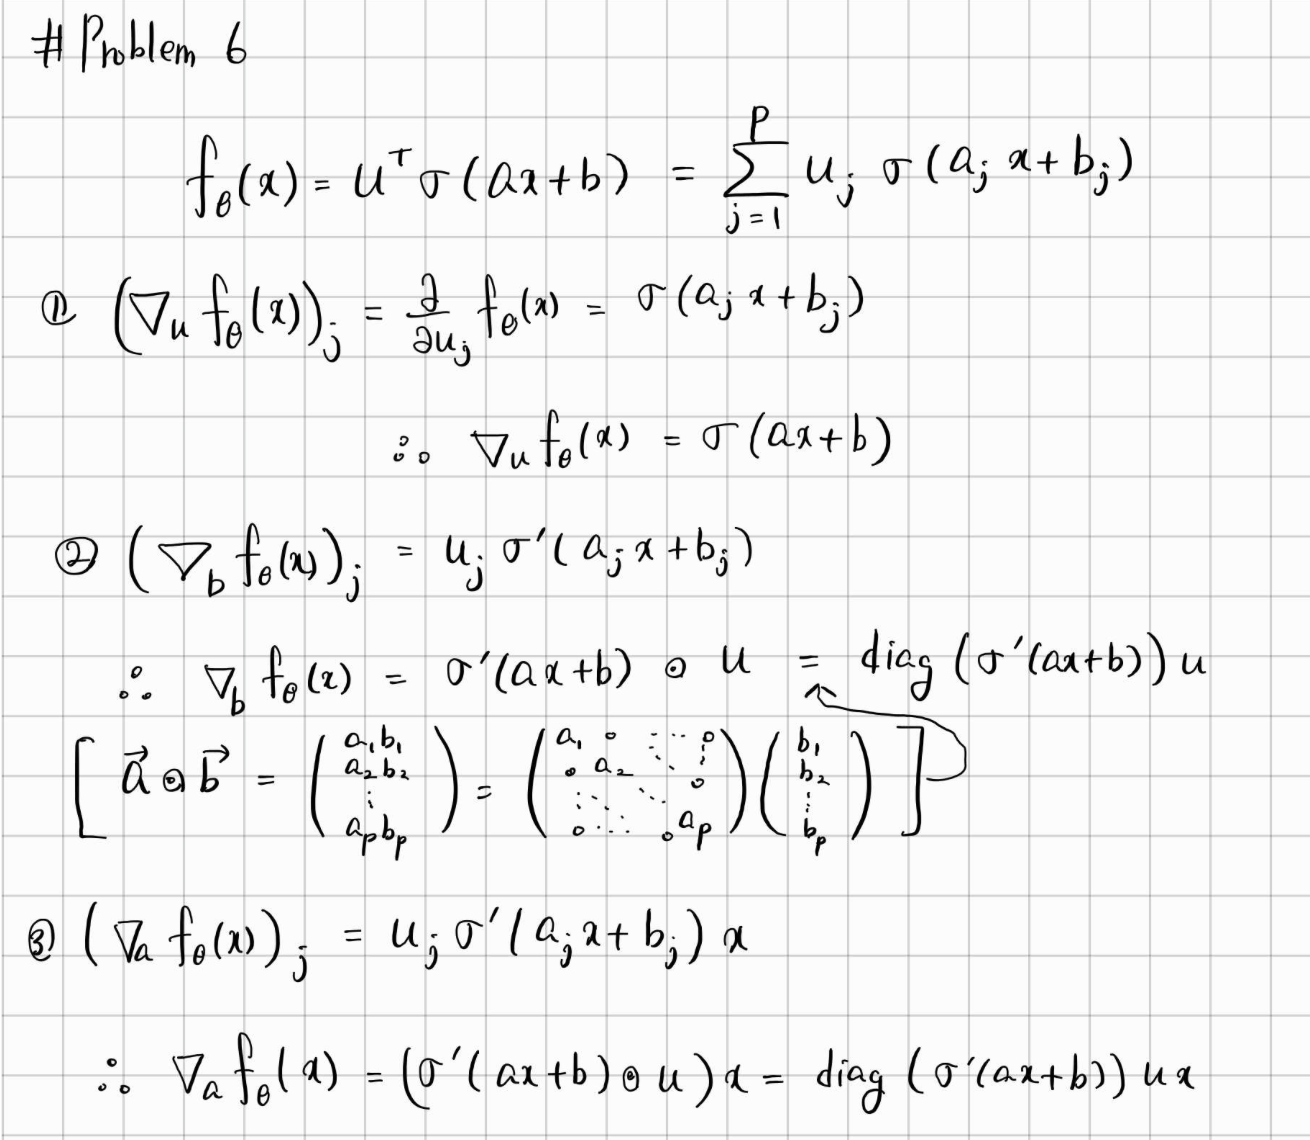 # Problem 6
f_θ(x) = u^T σ(ax+b) = Σ_{j=1}^{p} u_j σ(a_j x + b_j)
① (∇_u f_θ(x))_j = ∂/∂u_j f_θ(x) = σ(a_j x + b_j)
∴ ∇_u f_θ(x) = σ(ax+b)
② (∇_b f_θ(x))_j = u_j σ'(a_j x + b_j)
∴ ∇_b f_θ(x) = σ'(ax+b) ⊙ u = diag(σ'(ax+b)) u
[ a⃗ ⊙ b⃗ = (a_1b_1, a_2b_2, ⋮, a_pb_p) = (a_1 0 ⋯ 0; 0 a_2 ⋱ 0; ⋮ ⋱ ⋱; 0 ⋯ 0 a_p) (b_1, b_2, ⋮, b_p) ]
③ (∇_a f_θ(x))_j = u_j σ'(a_j x + b_j) x
∴ ∇_a f_θ(x) = (σ'(ax+b) ⊙ u) x = diag(σ'(ax+b)) u x